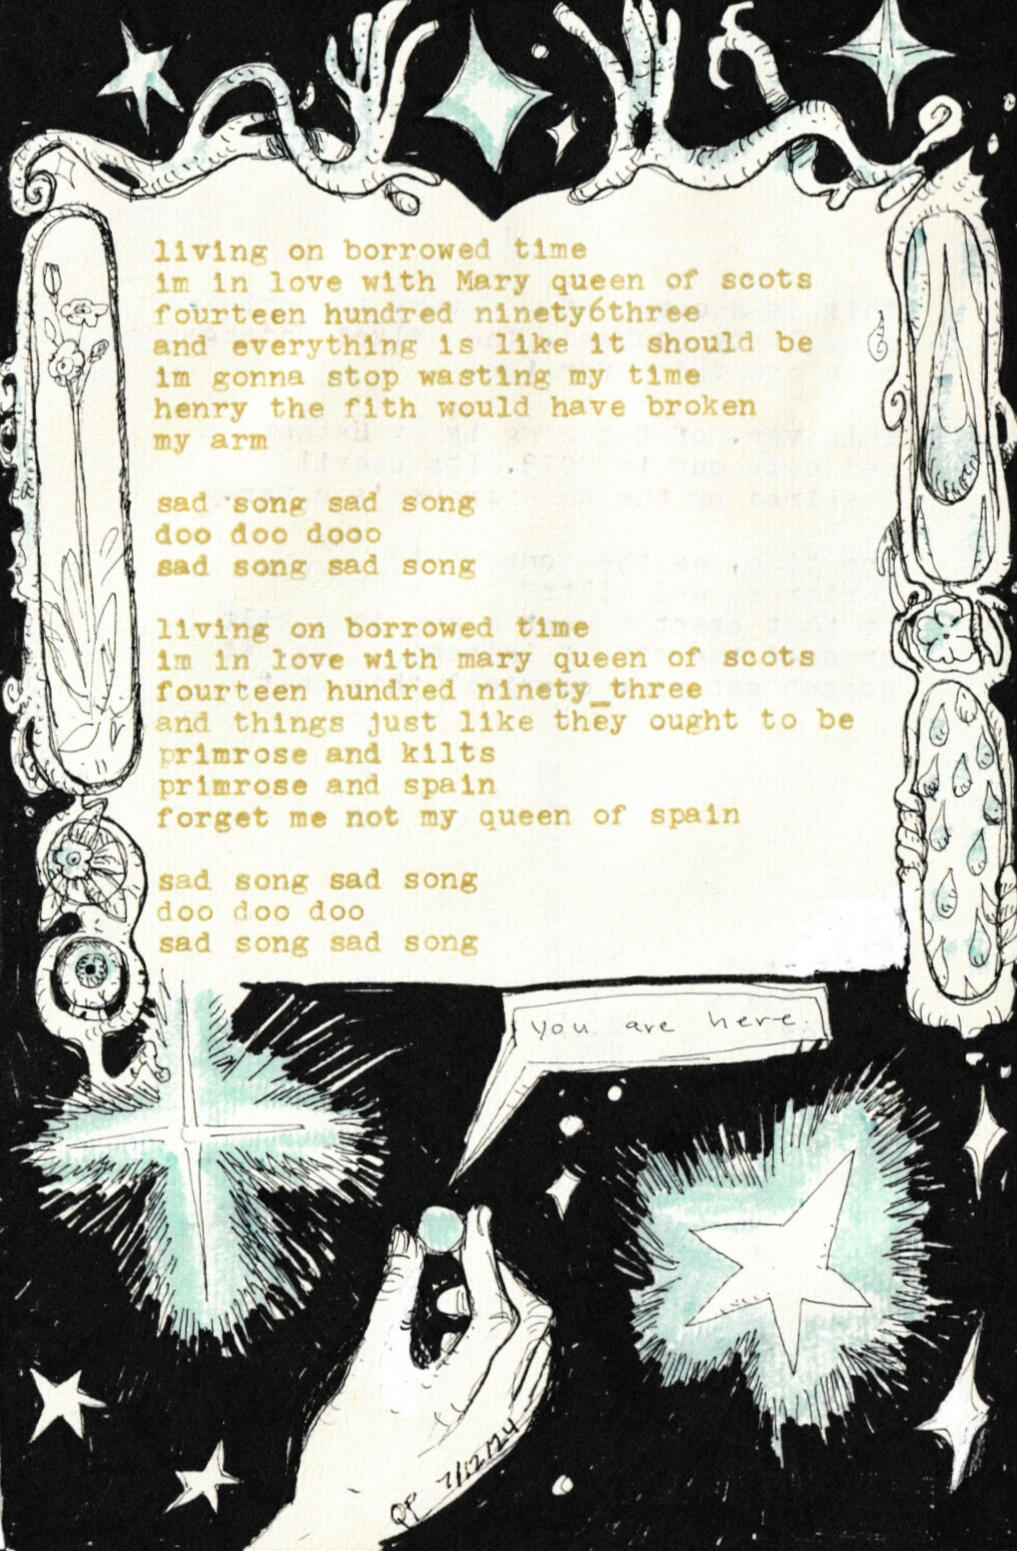 living on borrowed time
im in love with Mary queen of scots
fourteen hundred ninety6three
and everything is like it should be
im gonna stop wasting my time
henry the fith would have broken
my arm
sad song sad song
doo doo dooo
sad song sad song
living on borrowed time
im in love with mary queen of scots
fourteen hundred ninety_three
and things just like they ought to be
primrose and kilts
primrose and spain
forget me not my queen of spain
sad song sad song
doo doo doo
sad song sad song
you are here.
QP 7/12/24